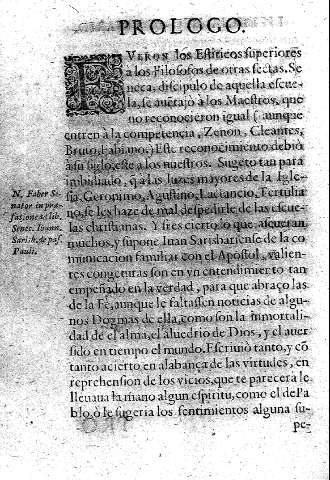 PROLOGO.
FVERON los Estoicos superiores
à los Filosofos de otras sectas. Se
neca, discipulo de aquella escue
la, se auētajò à los Maestros, que
no reconocieron igual (aunque
entren à la competencia, Zenon, Cleantes,
Bruto, Fabiano.) Este reconocimiento debiò
à su siglo, este à los nuestros. Sugeto tan para
imbidiado, q̃ à las luzes mayores de la Igle
sia, Geronimo, Agustino, Lactancio, Tertulia
no, se les haze de mal despedirle de las escue
las christianas. Y si es cierto lo que asseueran
muchos, y supone Iuan Sarisbariense de la co
municacion familiar con el Apostol, valien
tes congeturas son en vn entendimiento tan
empeñado en la verdad, para que abraçolas
de la Fè, aunque le faltassen noticias de algu-
nos Dogmas de ella, como son la inmortali-
dad de el alma, el aluedrio de Dios, y el auer
sido en tiempo el mundo. Escriuiò tanto, y cō
tanto acierto en alabança de las virtudes, en
reprehension de los vicios, que te parecerà le
lleuaua la mano algun espiritu, como el de Pa
blo, ò le sugeria los sentimientos alguna su-
pe-
N. Faber Se-
nator in præ-
fatione ad lib.
Senec. Ioann.
Sarisb. de pas.
Pauli.